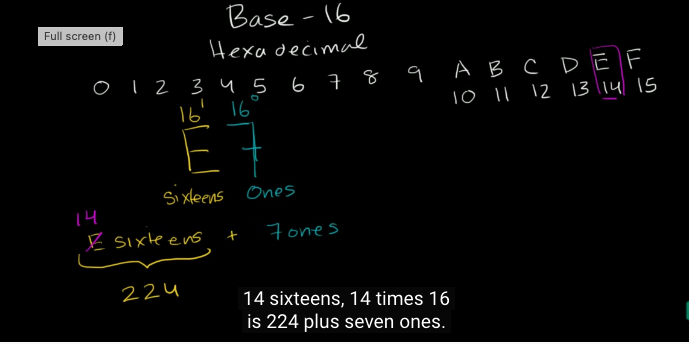 Base - 16
Full screen (f)
Hexadecimal
0 1 2 3 4 5 6 7 8 9 A B C D E F
10 11 12 13 14 15
16¹ 16⁰
E 7
sixteens ones
14
E sixteens + 7 ones
224
14 sixteens, 14 times 16
is 224 plus seven ones.